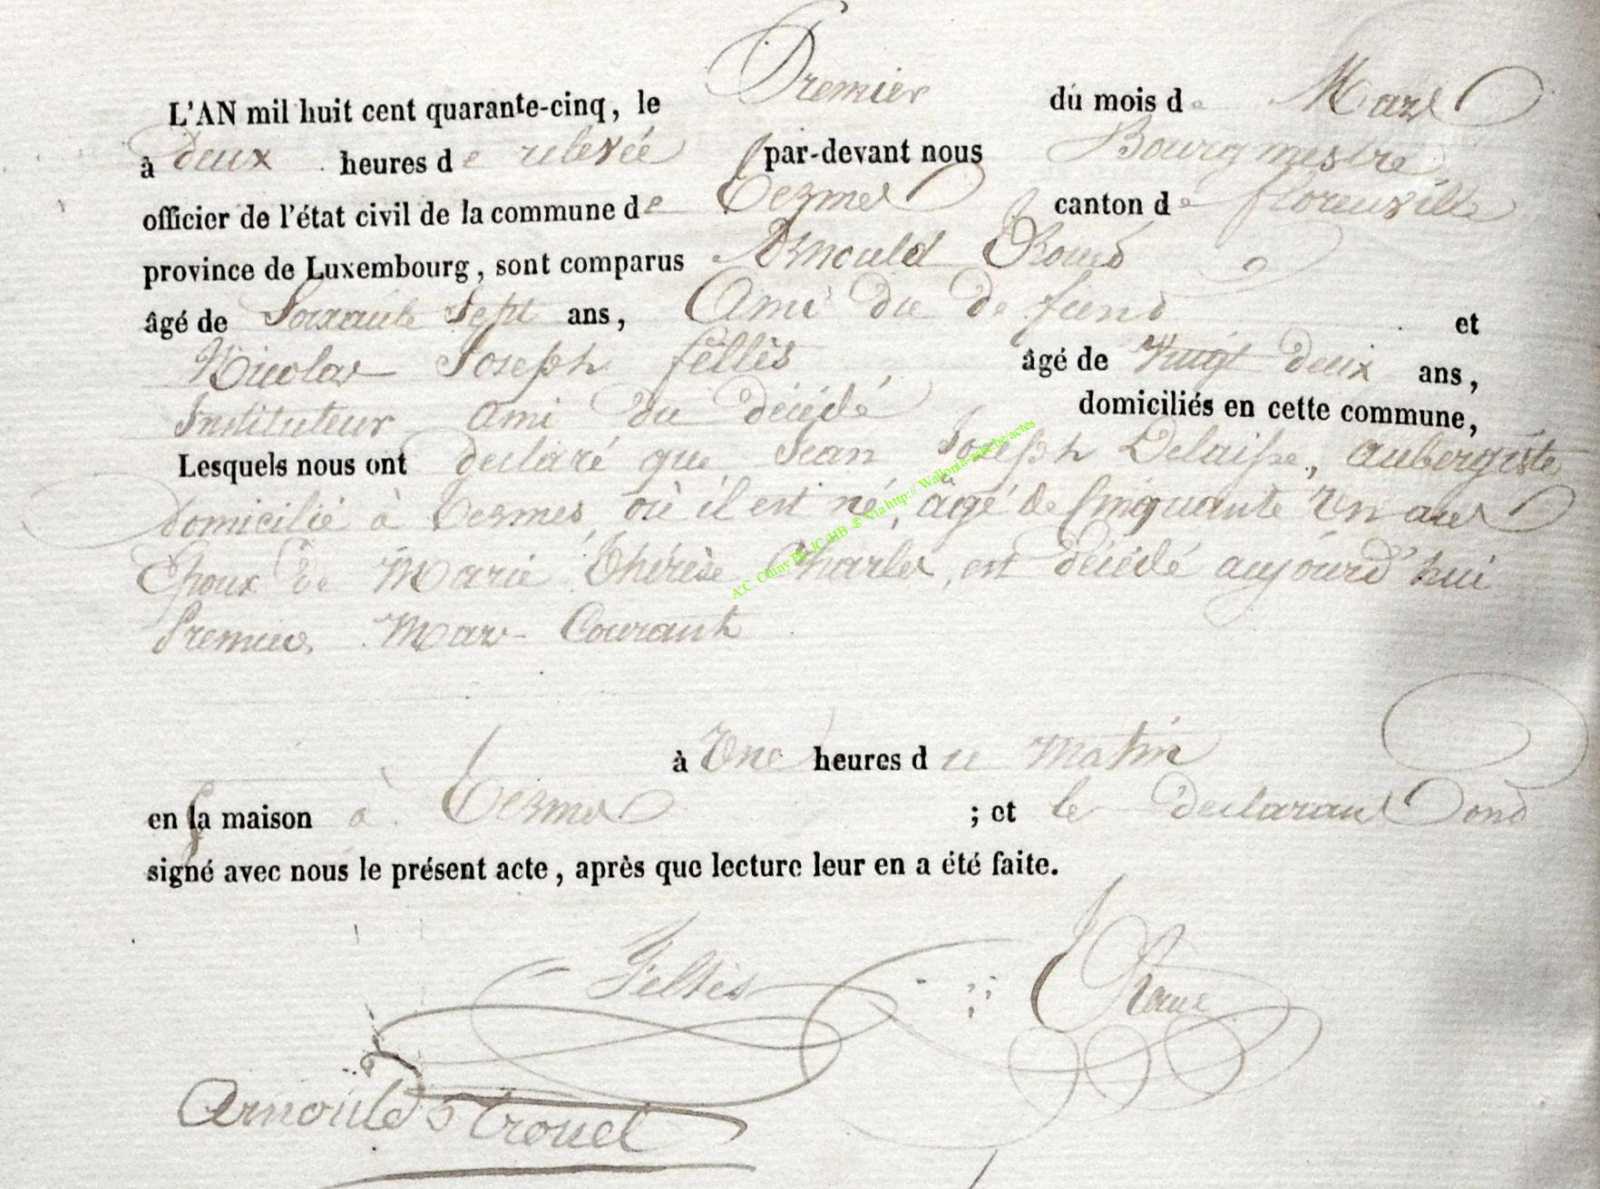 L'AN mil huit cent quarante-cinq, le Premier du mois de Mars
à deux heures de relevée par-devant nous Bourgmestre
officier de l'état civil de la commune de Termes canton de florenville
province de Luxembourg, sont comparus Arnould
âgé de Soixante Sept ans, Ami du defunt et
Nicolas Joseph felles âgé de Vingt deux ans,
Instituteur ami du décédé domiciliés en cette commune,
Lesquels nous ont declaré que Jean Joseph Delaisse, aubergiste
domicilié à Termes, où il est né, âgé de Cinquante Un ans
Epoux de Marie Thérèse Charles, est décédé aujourd'hui
Premier Mars Courant
à Une heures du Matin
en sa maison à Termes ; et le declarant ont
signé avec nous le présent acte, après que lecture leur en a été faite.
Arnould